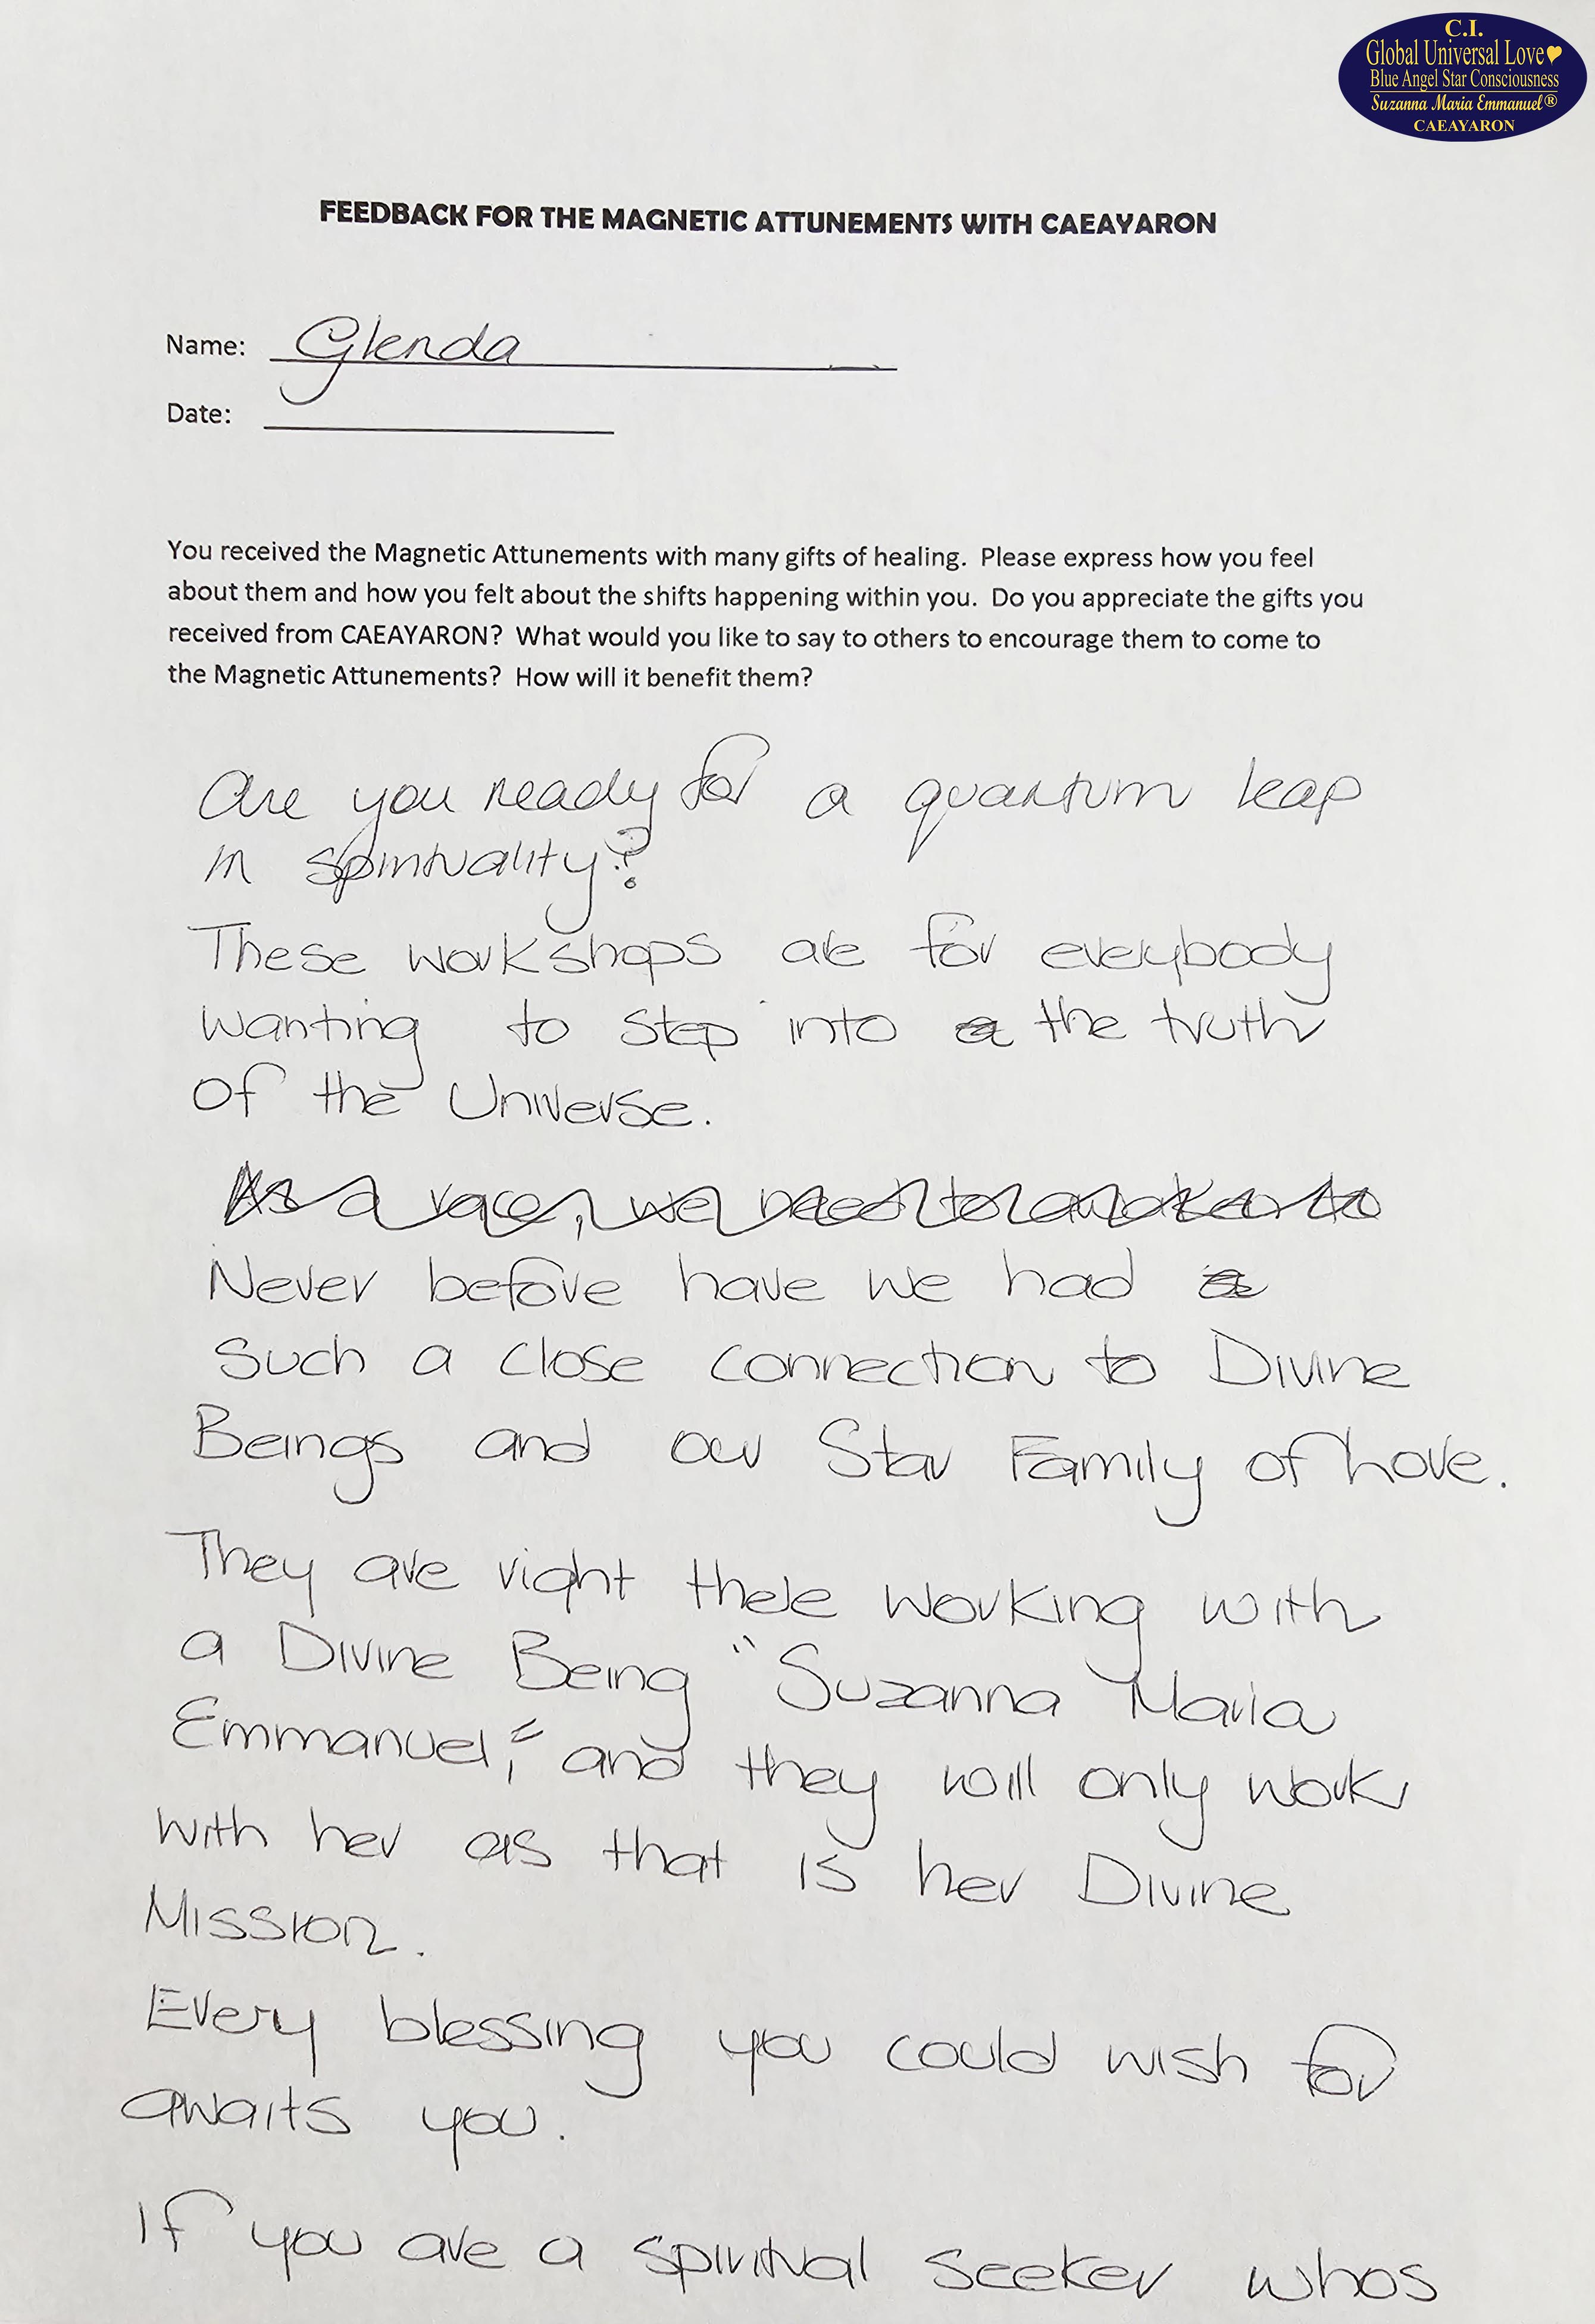 C.I.
Global Universal Love
Blue Angel Star Consciousness
Suzanna Maria Emmanuel®
CAEAYARON
FEEDBACK FOR THE MAGNETIC ATTUNEMENTS WITH CAEAYARON
Name: Glenda
Date:
You received the Magnetic Attunements with many gifts of healing. Please express how you feel
about them and how you felt about the shifts happening within you. Do you appreciate the gifts you
received from CAEAYARON? What would you like to say to others to encourage them to come to
the Magnetic Attunements? How will it benefit them?
Are you ready for a quantum leap
in spirituality?
These workshops are for everybody
wanting to step into the truth
of the Universe.
As a race, we need to awaken to
Never before have we had
such a close connection to Divine
Beings and our Star Family of Love.
They are right there working with
a Divine Being "Suzanna Maria
Emmanuel," and they will only work
with her as that is her Divine
Mission.
Every blessing you could wish for
awaits you.
If you are a spiritual seeker whos